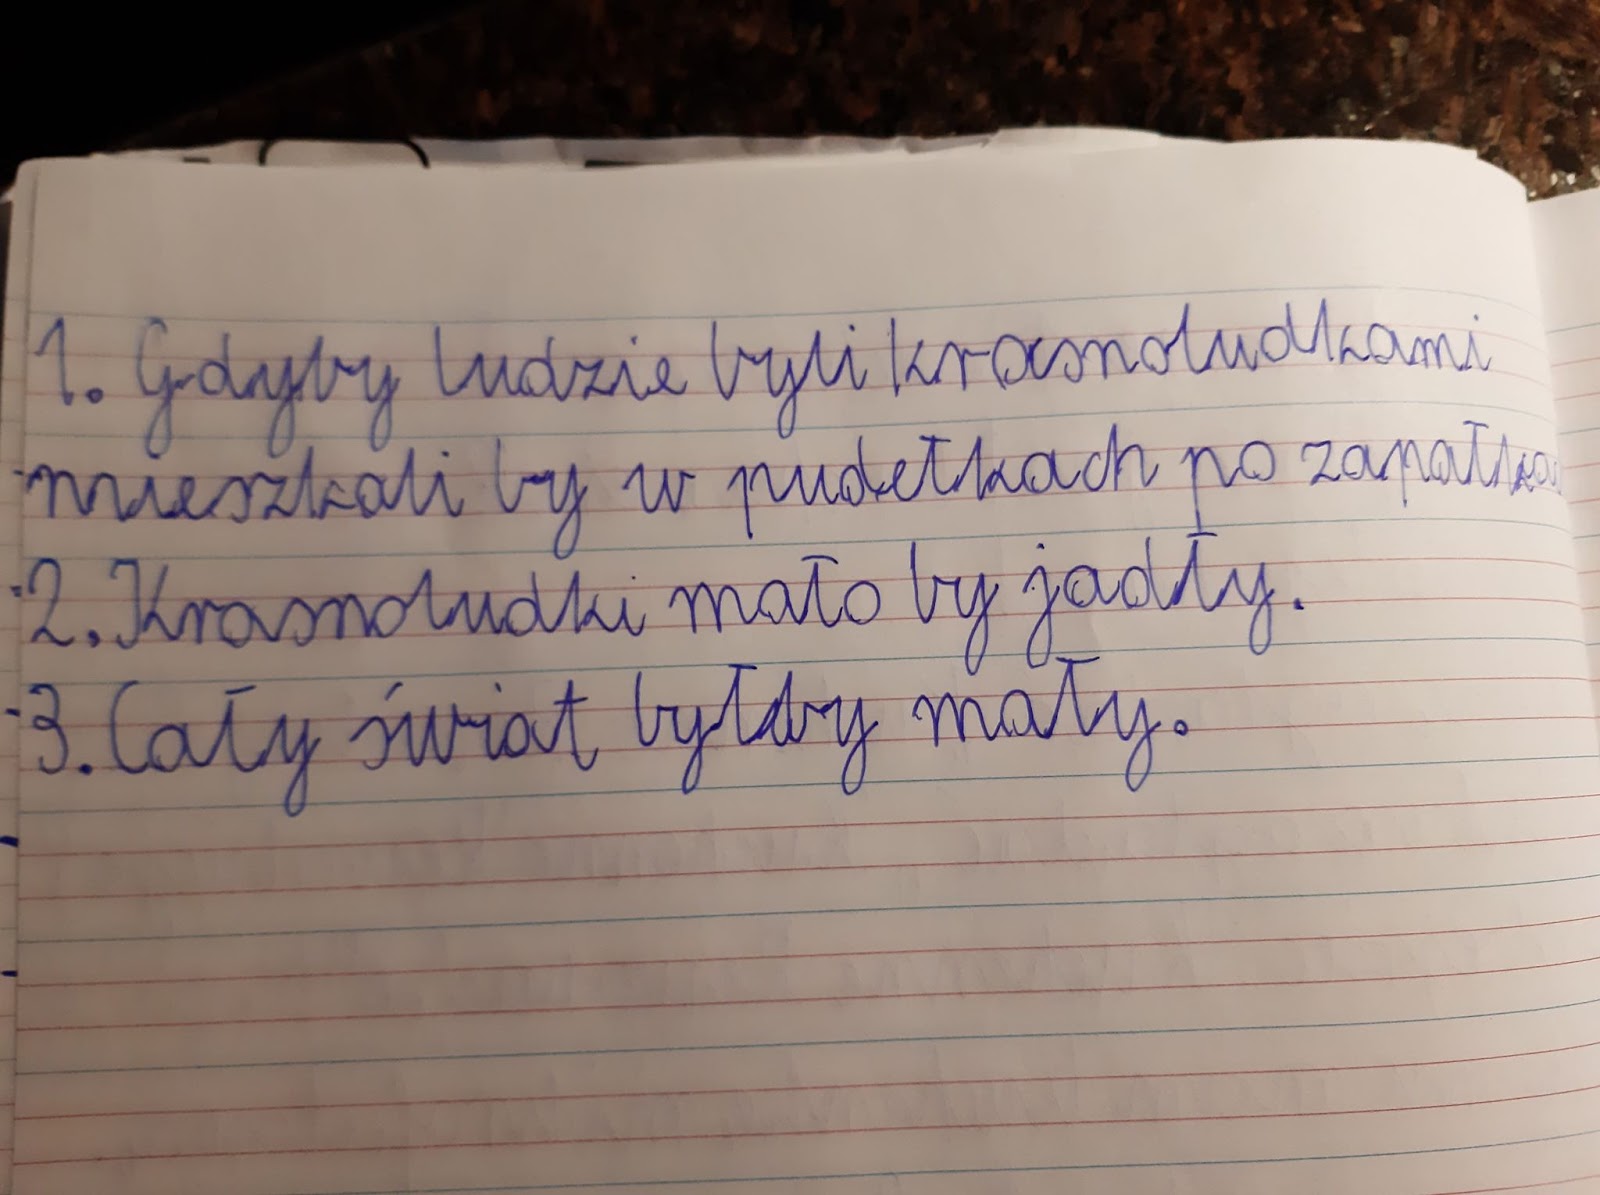 1. Gdyby ludzie byli krasnoludkami
mieszkali by w pudełkach po zapałka
2. Krasnoludki mało by jadły.
3. Cały świat byłby mały.